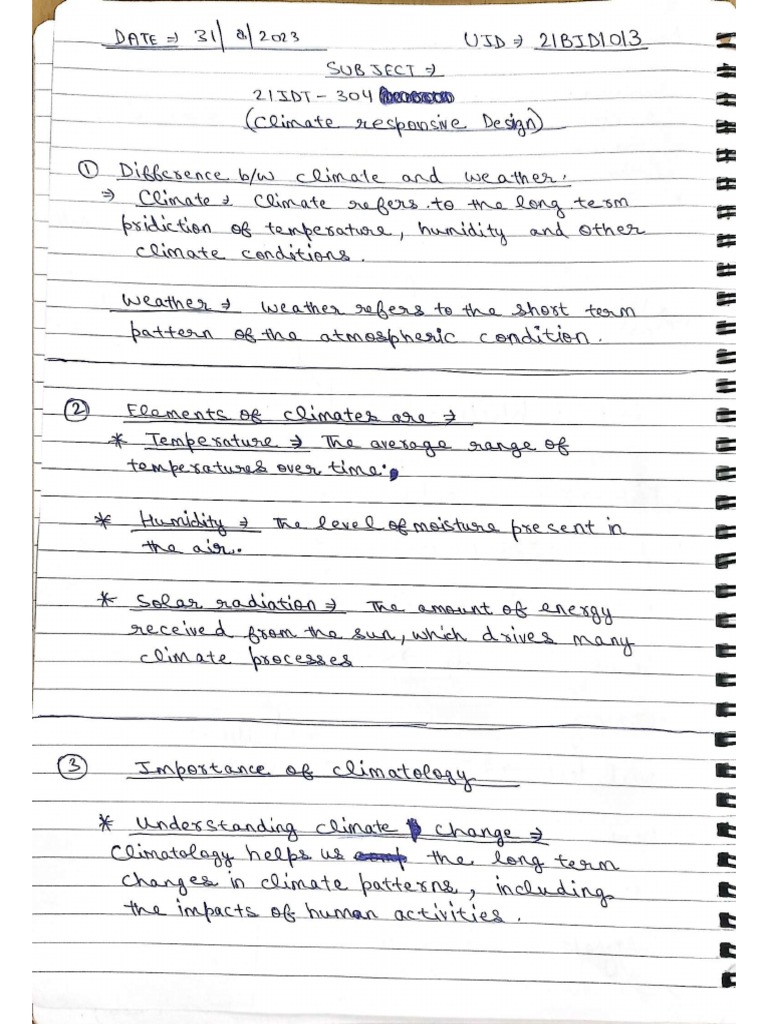 DATE ⇒ 31/8/2023 UID ⇒ 21BID1013
SUBJECT ⇒
21IDT - 304
(Climate responsive Design)
① Difference b/w climate and weather.
⇒ Climate ⇒ Climate refers to the long term
pridiction of temperature, humidity and other
climate conditions.
Weather ⇒ Weather refers to the short term
pattern of the atmospheric condition.
② Elements of climates are ⇒
* Temperature ⇒ The average range of
temperatures over time.
* Humidity ⇒ The level of moisture present in
the air.
* Solar radiation ⇒ The amount of energy
received from the sun, which drives many
climate processes
③ Importance of climatology
* Understanding climate change ⇒
Climatology helps us the long term
changes in climate patterns, including
the impacts of human activities.